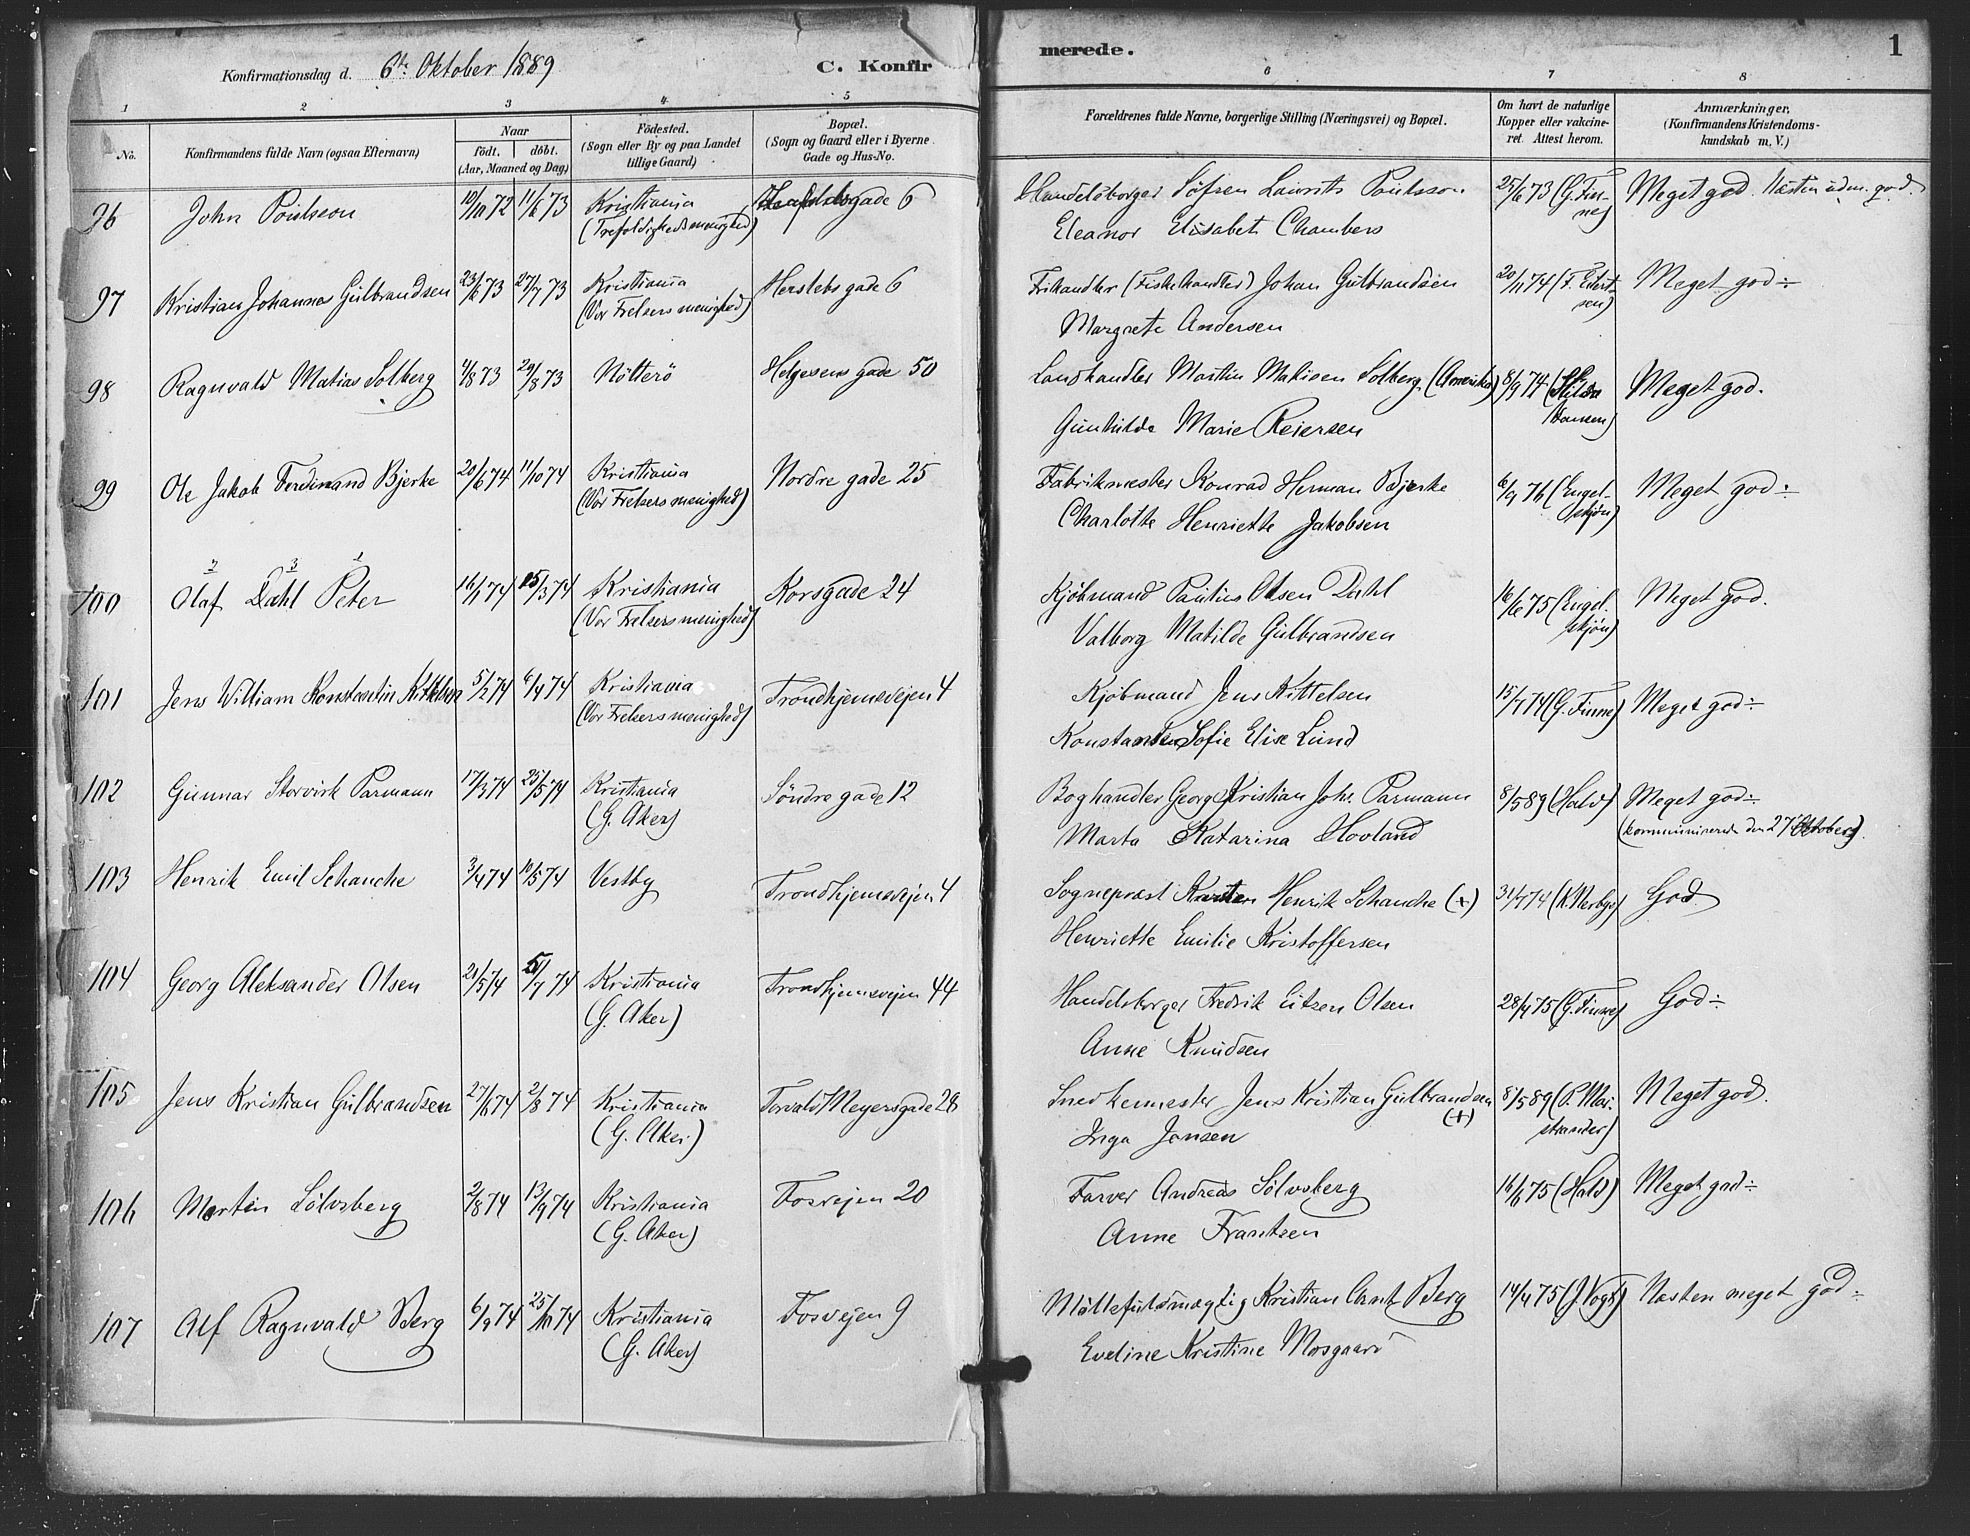 Konfirmationsdag d. 6te Oktober 1889
C. Konfir
merede.
1
1 2 3 4 5 6 7 8
No.
Konfirmandens fulde Navn (ogsaa Efternavn)
Naar
födt. döbt.
(Aar, Maaned og Dag)
Födested.
(Sogn eller By og paa Landet
tillige Gaard)
Bopæl.
(Sogn og Gaard eller i Byerne
Gade og Hus-No.
Forældrenes fulde Navne, borgerlige Stilling (Næringsvei) og Bopæl.
Om havt de naturlige
Kopper eller vakcine-
ret. Attest herom.
Anmærkninger,
(Konfirmandens Kristendoms-
kundskab m. V.)
96 John Poulsson 10/10 72 11/6 73 Kristiania gade 6 Handelsborger Søfren Laurits Poulsson 25/6 73 (G. Fin- Meget god. Næsten udm. god.
(Trefoldighedsmenighed) Eleanor Elisabet Chambers ne)
97 Kristian Johannes Gulbrandsen 23/6 73 27/7 73 Kristiania Herslebs gade 6 Frihandler (Fiskehandler) Johan Gulbrandsen 20/11 74 (F. Eilert- Meget god ÷
(Vor Frelsers menighed) Margrete Andersen sen)
98 Ragnvald Matias Solberg 4/8 73 29/8 73 Nötterö Helgesens gade 50 Landhandler Martin Matisen Solberg (Amerika) 8/9 74 (Hilda Meget god.
Gunhilda Marie Reiersen Hansen)
99 Ole Jakob Ferdinand Bjerke 20/6 74 11/10 74 Kristiania Nordre gade 25 Fabrikmester Konrad Herman Bjerke 6/9 76 (Engel- Meget god ÷
(Vor Frelsers menighed) Charlotte Henriette Jakobsen skjøn)
2 3 1
100 Olaf Dahl Peter 16/1 74 15/3 74 Kristiania Korsgade 24 Kjøbmand Paulus Olsen Dahl 16/6 75 (Engel- Meget god.
(Vor Frelsers menighed) Valborg Matilde Gulbrandsen skjøn)
101 Jens William Konstantin Kittelsen 5/2 74 6/4 74 Kristiania Trondhjemsvejen 4 Kjøbmand Jens Kittelsen 15/7 74 (G. Finne) Meget god ÷
(Vor Frelsers menighed) Konstanse Sofie Elise Lund
102 Gunnar Storvick Parmann 17/3 74 25/5 74 Kristiania Søndre gade 12 Boghandler Georg Kristian Johs. Parmann 8/5 89 (Hald) Meget god ÷
(G. Aker) Marta Katarina Hovland (kommunicerede den 27 Oktober).
103 Henrik Emil Schanche 3/4 74 10/5 74 Vestby Trondhjemsvejen 4 Sogneprest Karsten Henrik Schanche (+) 31/7 74 God.
Henriette Emilie Kristoffersen
104 Georg Aleksander Olsen 21/5 74 5/7 74 Kristiania Trondhjemsvejen 44 Handelsborger Fredrik Eitzen Olsen 28/4 75 (G. Finne) God ÷
(G. Aker) Anne Knudsen
105 Jens Kristian Gulbrandsen 27/6 74 2/8 74 Kristiania Torvald Meyersgade 28 Snedkermester Jens Kristian Gulbrandsen 8/5 89 (P. Mar- Meget god.
(+)
(G. Aker) Inga Jansen strander)
106 Martin Sølvsberg 2/8 74 13/9 74 Kristiania Fosvejen 20 Farver Andreas Sølvsberg 16/6 75 (Hald) Meget god ÷
(G. Aker) Anne Frantzen
107 Alf Ragnvald Berg 6/9 74 25/10 74 Kristiania Fosvejen 9 Møllefuldmægtig Kristian Arnt Berg 14/4 75 (J. Vogt) Næsten meget god ÷
(G. Aker) Eveline Kristine Mosgaard